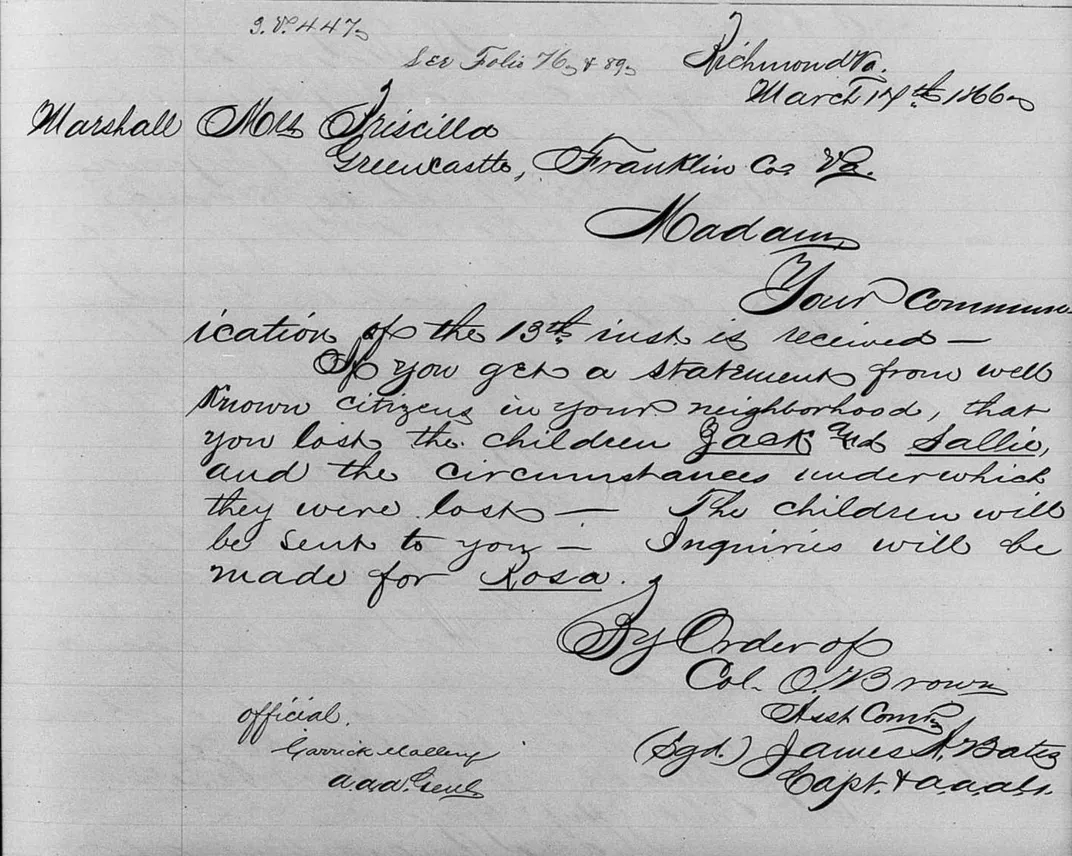 See Folio 76, & 89,
Richmond Va.
March 14th 1866,
Marshall Mrs Priscilla
Greencastle, Franklin Co, Va.
Madam,
Your Commun
ication of the 13th inst is received —
If you get a statement from well
known citizens in your neighborhood, that
you lost the children Zack and Sallie,
and the circumstances under which
they were lost — The children will
be sent to you — Inquiries will be
made for Rosa.
By Order of
Col. O. Brown
Asst Comr,
official.
(Sgd.) James A. Bates
Garrick Mallery
Capt. & a.a.a.G.
a.a.a. Genl